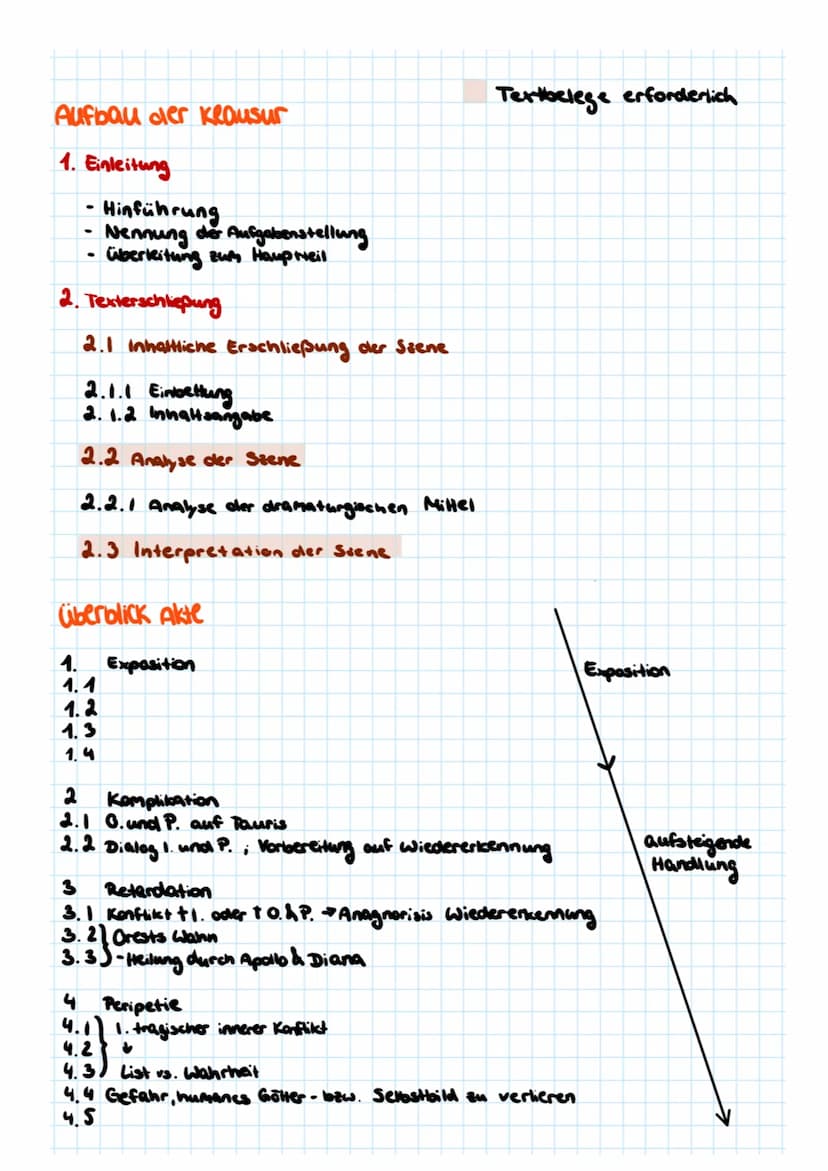 Textbelege erforderlich
Aufbau der Klausur
1. Einleitung
- Hinführung
- Nennung der Aufgabenstellung
- Überleitung zum Hauptteil
2. Texterschließung
2.1 Inhaltliche Erschließung der Szene
2.1.1 Einbettung
2.1.2 Inhaltsangabe
2.2 Analyse der Szene
2.2.1 Analyse der dramaturgischen Mittel
2.3 Interpretation der Szene
Überblick Akte
1. Exposition
Exposition
1.1
1.2
1.3
1.4
2 Komplikation
2.1 O. und P. auf Tauris
2.2 Dialog I. und P. ; Vorbereitung auf Wiedererkennung
aufsteigende
Handlung
3 Retardation
3.1 Konflikt † I. oder † O. & P. → Anagnorisis Wiedererkennung
3.2 } Orests Wahn
3.3 } -Heilung durch Apollo & Diana
4 Peripetie
4.1 } I. tragischer innerer Konflikt
4.2 } ↓
4.3 } List vs. Wahrheit
4.4 Gefahr, humanes Götter- bzw. Selbstbild zu verlieren
4.5